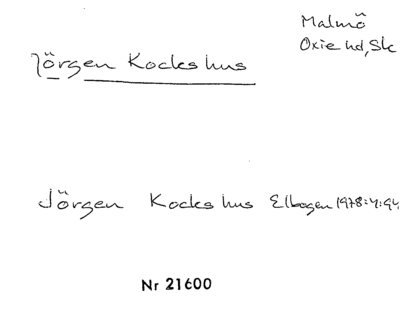 Malmö
Oxie hd, Sk
Jörgen Kocks hus
Jörgen Kocks hus Elbogen 1978:4:94
Nr 21600